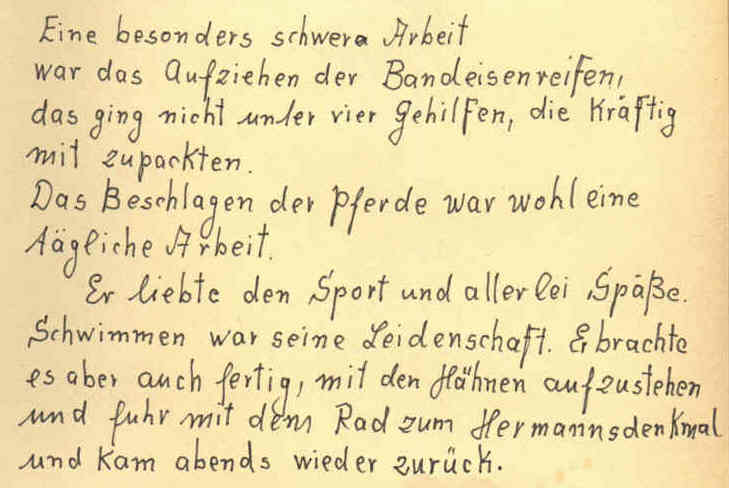 Eine besonders schwere Arbeit
war das Aufziehen der Bandeisenreifen,
das ging nicht unter vier Gehilfen, die kräftig
mit zupackten.
Das Beschlagen der Pferde war wohl eine
tägliche Arbeit.
Er liebte den Sport und allerlei Späße.
Schwimmen war seine Leidenschaft. Er brachte
es aber auch fertig, mit den Hähnen aufzustehen
und fuhr mit dem Rad zum Hermannsdenkmal
und kam abends wieder zurück.